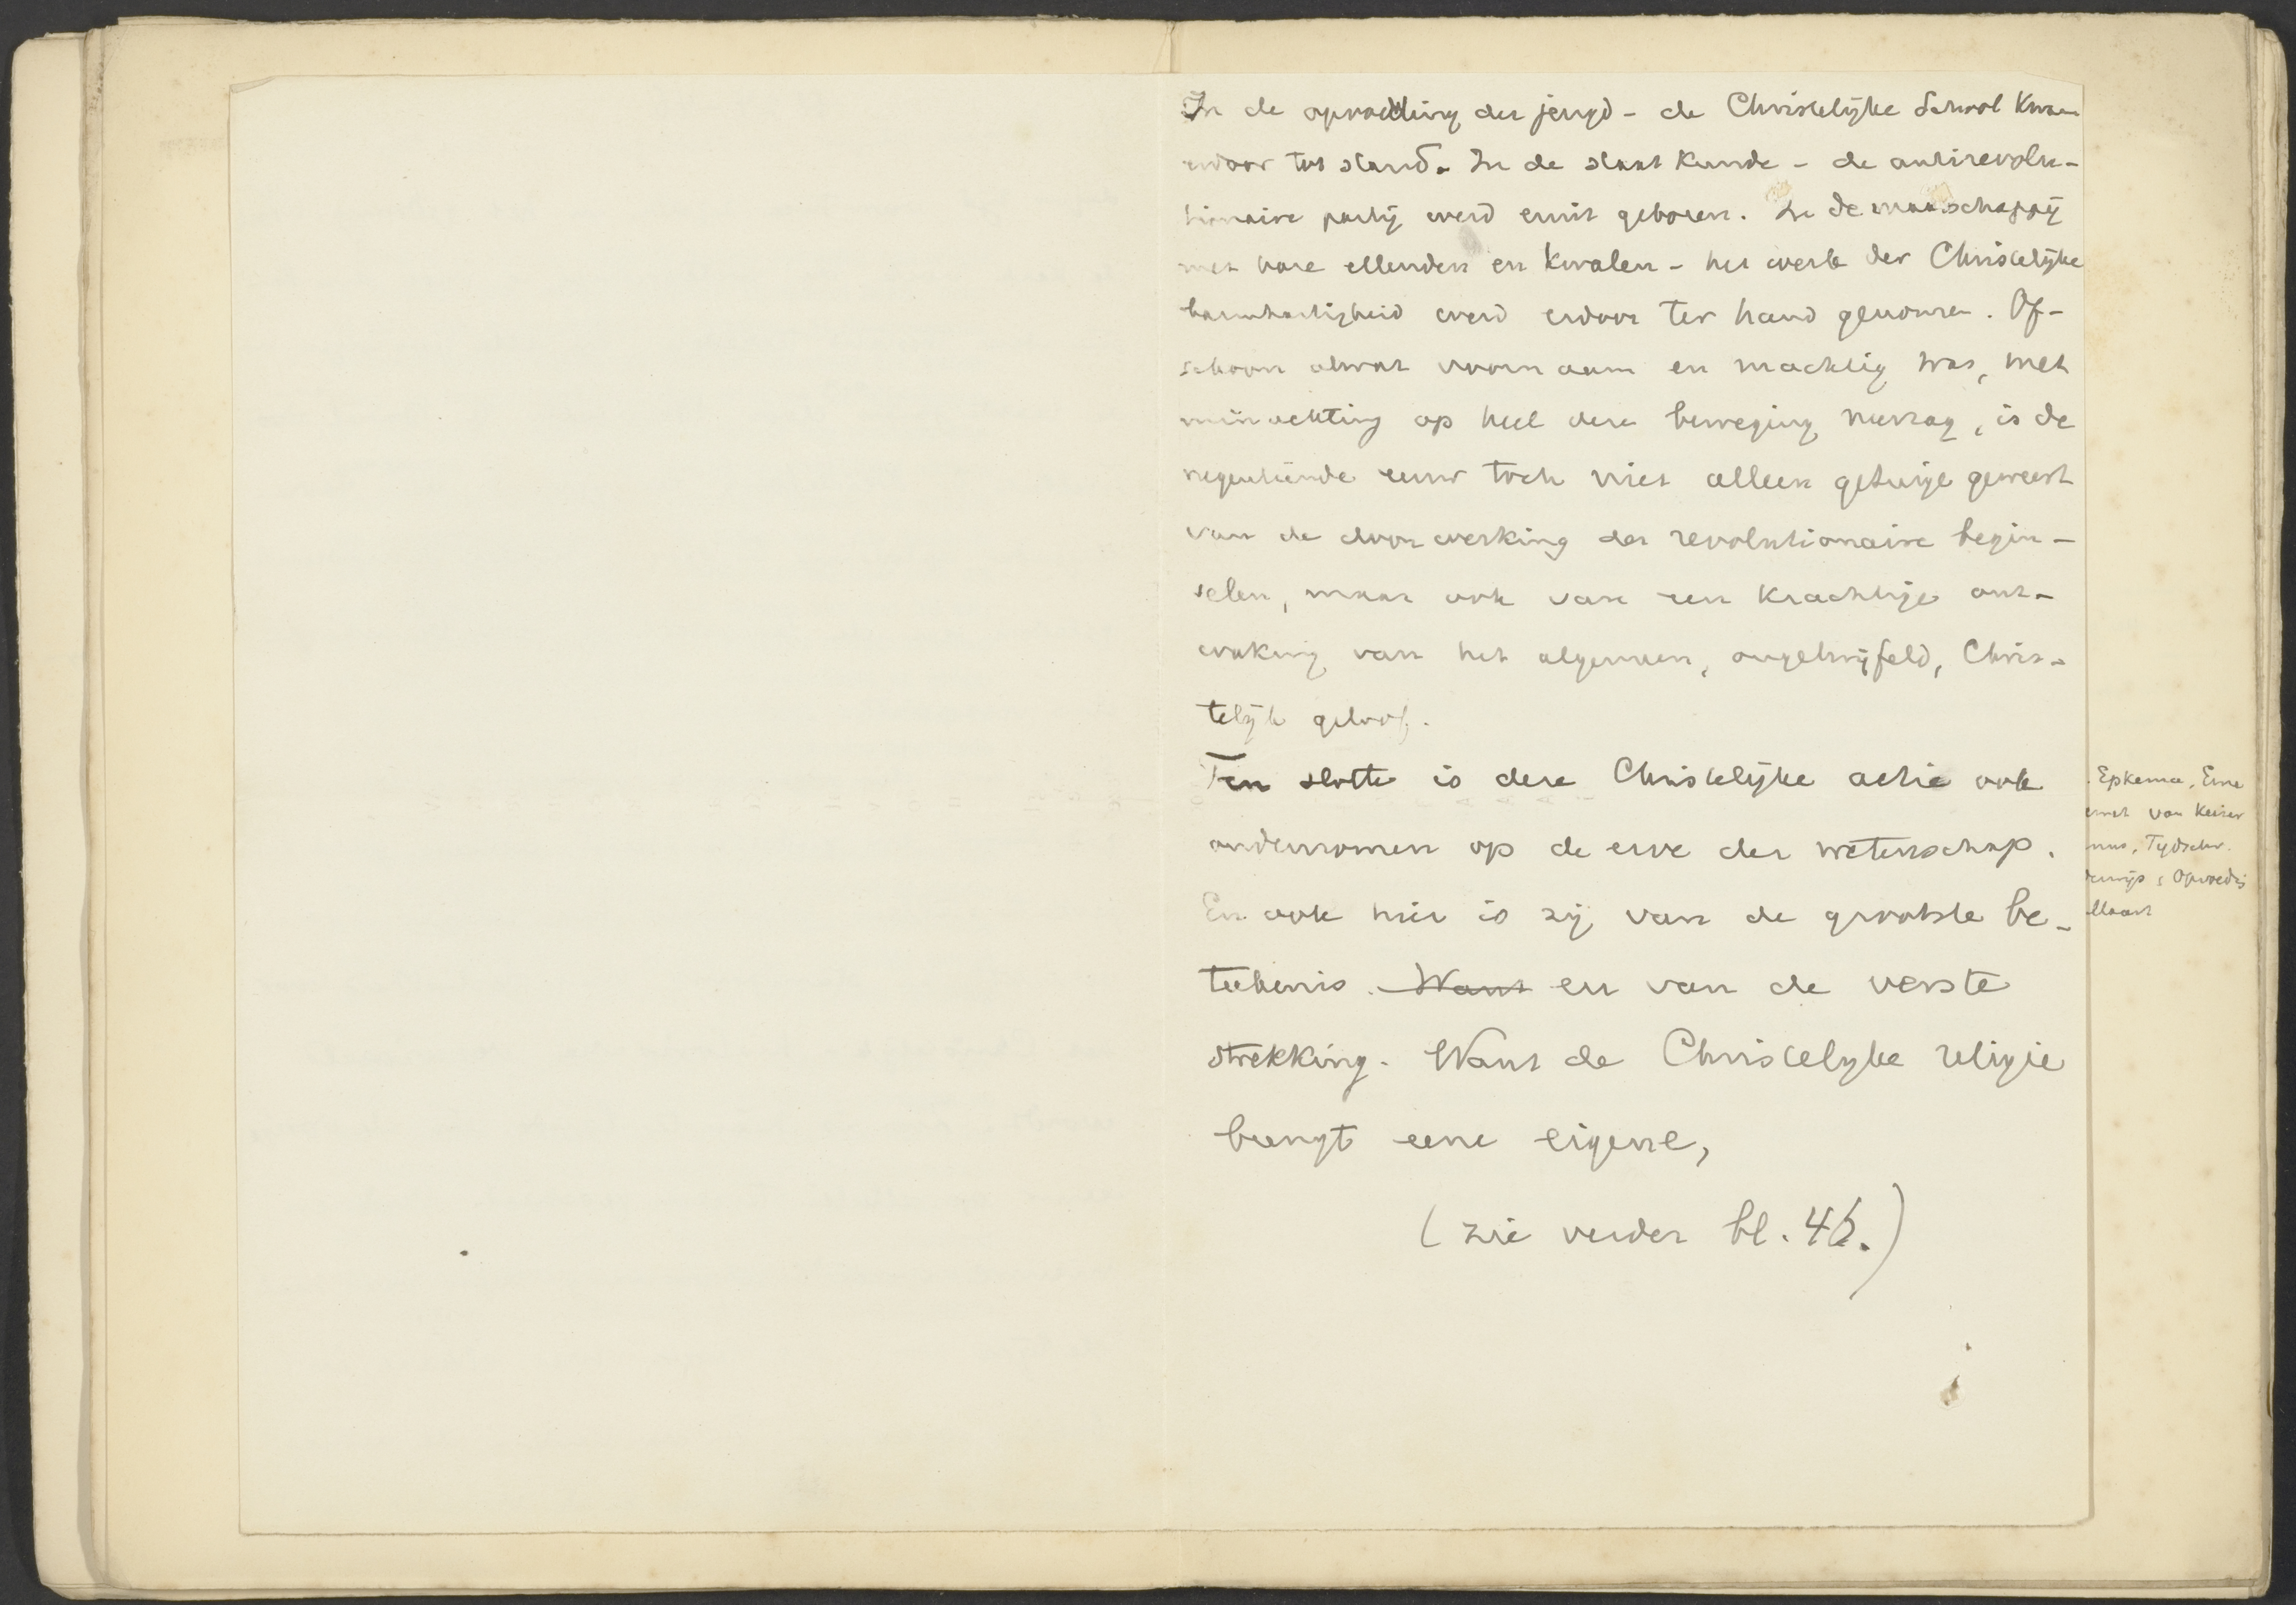 In de opvoeding der jeugd - de Christelijke School kwam
erdoor tot stand. In de staatkunde - de antirevolu-
tionaire partij werd eruit geboren. In de maatschappij
met hare ellenden en kwalen - het werk der Christelijke
barmhartigheid werd erdoor ter hand genomen. Of-
schoon alwat voornaam en machtig was, met
minachting op heel deze beweging neerzag, is de
negentiende eeuw toch niet alleen getuige geweest
van de doorwerking der revolutionaire begin-
selen, maar ook van een krachtige ont-
waking van het algemeen, ongetwijfeld, Chris-
telijk geloof.
Ten slotte is deze Christelijke actie ook
ondernomen op de erve der wetenschap.
En ook hier is zij van de grootste be-
teekenis. Want en van de verste
strekking. Want de Christelijke religie
brengt eene eigene,
(zie verder bl. 46.)
Epkema, Eine
van Keiser
Tijdschr.
Opvoedig